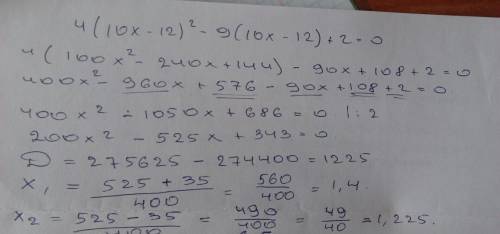 4(10x-12)² - 9(10x-12)+2=0
4(100x² - 240x+144) - 90x+108+2=0
400x² - 960x + 576 - 90x + 108 + 2 = 0
400x² - 1050x + 686 = 0 |:2
200x² - 525x + 343 = 0
D = 275625 - 274400 = 1225
x₁ = (525 + 35)/400 = 560/400 = 1,4.
x₂ = (525 - 35)/400 = 490/400 = 49/40 = 1,225.